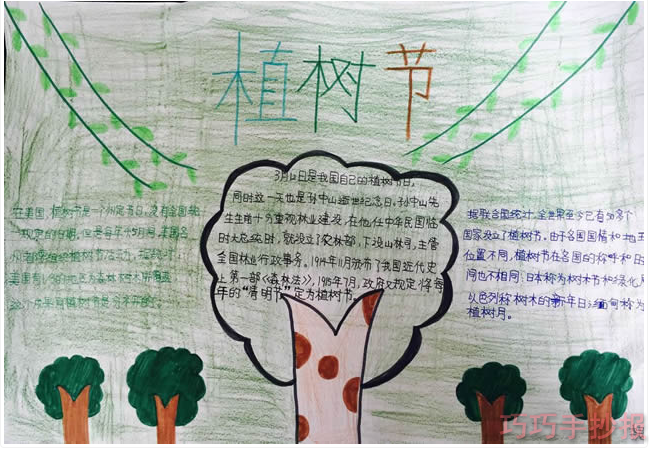 植树节
3月12日是我国自己的植树节日,
同时这一天也是孙中山逝世纪念日。孙中山先
生生前十分重视林业建设。在他任中华民国临
时大总统时,就设立了农林部,下设山林司,主管
全国林业行政事务,1914年11月颁布了我国近代史
上第一部《森林法》,1915年7月,政府又规定将每
年的“清明节”定为植树节。
在美国,植树节是一个州定节日,没有全国统
一规定的日期,但是每年4 5月间,美国各
州都
美国有1/3的地区为森林树木所覆盖
这个成果同植树节是分不开的
据联合国统计,全世界至今已有50多个
国家设立了植树节。由于各国国情和地理
位置不同,植树节在各国的称呼和日
间也不相同,日本称为树木节和绿化周
以色列称树木的新年日;缅甸称为
植树月。
巧巧手抄报